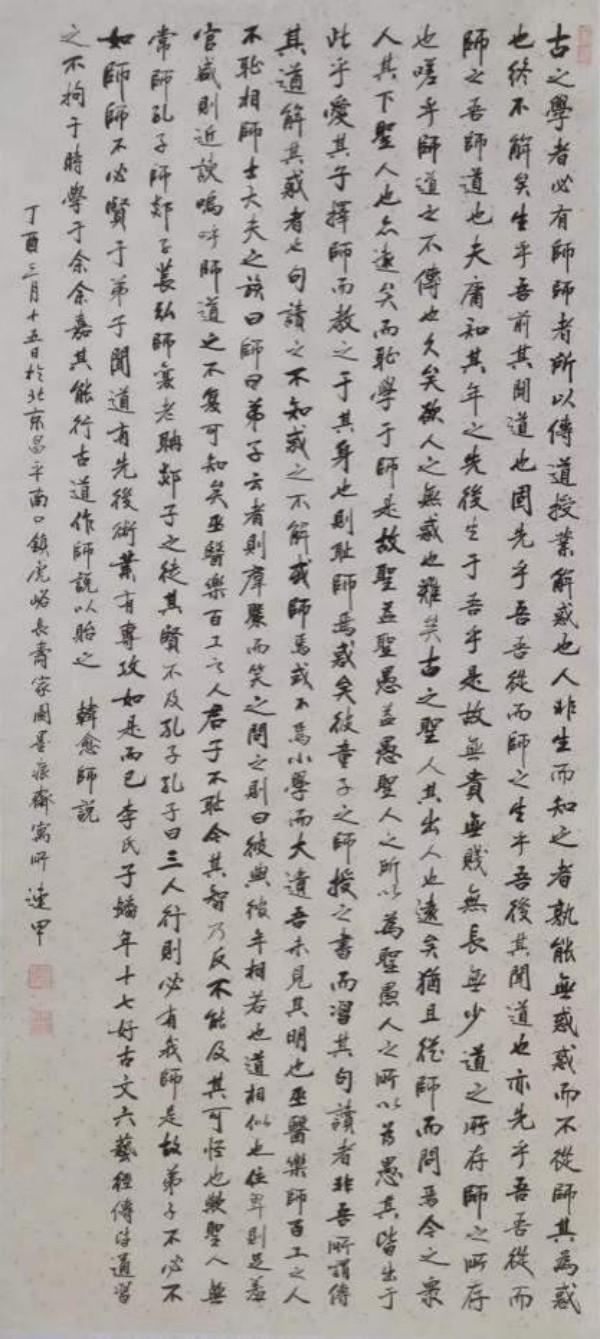 古之學者必有師師者所以傳道授業解惑也人非生而知之者孰能無惑惑而不從師其為惑
也終不解矣生乎吾前其聞道也固先乎吾吾從而師之生乎吾後其聞道也亦先乎吾吾從而
師之吾師道也夫庸知其年之先後生于吾乎是故無貴無賤無長無少道之所存師之所存
也嗟乎師道之不傳也久矣欲人之無惑也難矣古之聖人其出人也遠矣猶且從師而問焉今之衆
人其下聖人也亦遠矣而恥學于師是故聖益聖愚益愚聖人之所以為聖愚人之所以為愚其皆出于
此乎愛其子擇師而教之于其身也則恥師焉惑矣彼童子之師授之書而習其句讀者非吾所謂傳
其道解其惑者也句讀之不知惑之不解或師焉或不焉小學而大遺吾未見其明也巫醫樂師百工之人
不恥相師士大夫之族曰師曰弟子云者則羣聚而笑之問之則曰彼與彼年相若也道相似也位卑則足羞
官盛則近諛嗚呼師道之不復可知矣巫醫樂百工之人君子不恥今其智乃反不能及其可怪也歟聖人無
常師孔子師郯子萇弘師襄老聃郯子之徒其賢不及孔子孔子曰三人行則必有我師是故弟子不必不
如師師不必賢于弟子聞道有先後術業有專攻如是而已李氏子蟠年十七好古文六藝經傳皆通習
之不拘于時學于余余嘉其能行古道作師說以貽之 韓愈師說
丁酉三月十五日於北京昌平南口鎮虎峪長壽家園墨痕齋寓所 連甲